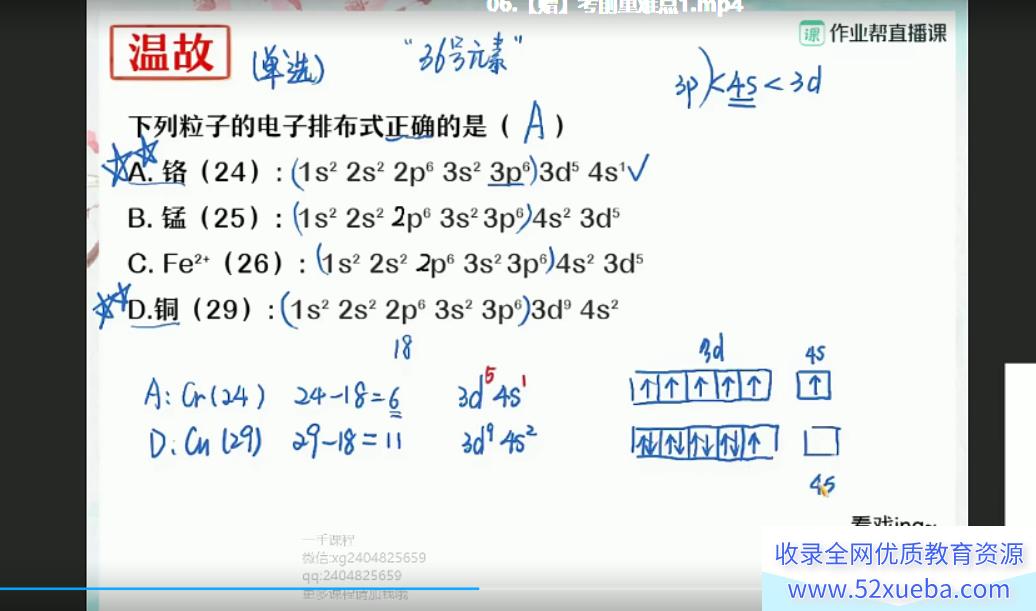 06.【赠】考前重难点1.mp4
温故
(单选)
“36号元素”
课 作业帮直播课
3p)<4s<3d
下列粒子的电子排布式正确的是（ A ）
A. 铬（24）：(1s² 2s² 2p⁶ 3s² 3p⁶)3d⁵ 4s¹√
B. 锰（25）：(1s² 2s² 2p⁶ 3s² 3p⁶)4s² 3d⁵
C. Fe²⁺（26）：(1s² 2s² 2p⁶ 3s² 3p⁶)4s² 3d⁵
D.铜（29）：(1s² 2s² 2p⁶ 3s² 3p⁶)3d⁹ 4s²
18
3d 4s
A: Cr(24) 24-18=6 3d⁵4s¹ ↑ ↑ ↑ ↑ ↑ ↑
D: Cu(29) 29-18=11 3d⁹4s² ↑↓ ↑↓ ↑↓ ↑↓ ↑
4s
看戏ing~
一手课程
微信:xg2404825659
qq:2404825659
更多课程请加我哦
收录全网优质教育资源
www.52xueba.com